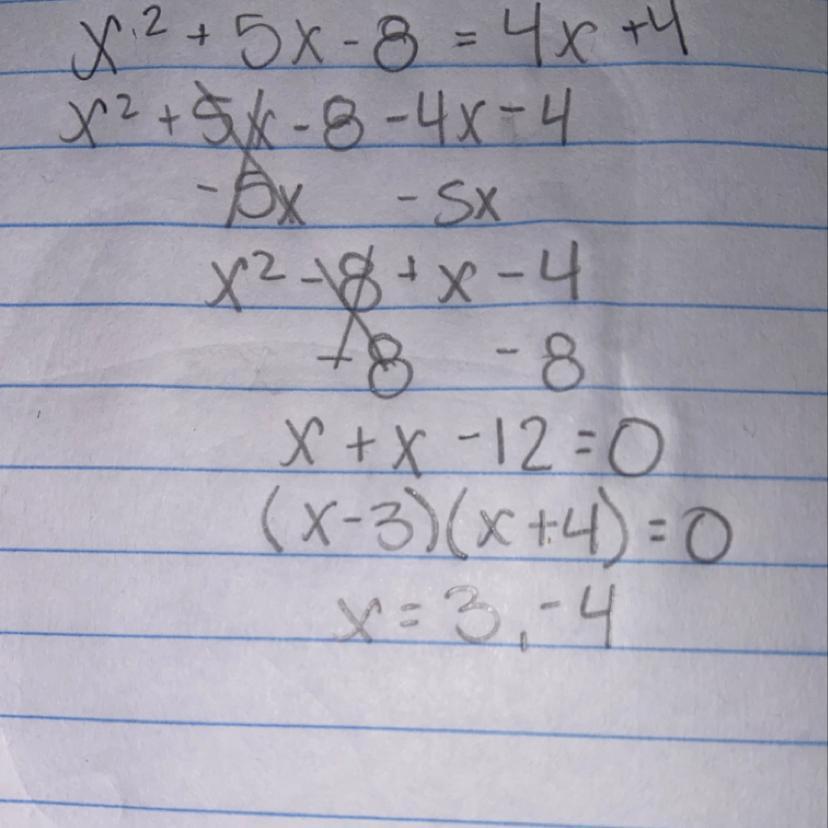 x² + 5x - 8 = 4x + 4
x² + 5x - 8 - 4x - 4
- 5x - 5x
x² - 8 + x - 4
+ 8 - 8
x + x - 12 = 0
(x - 3)(x + 4) = 0
x = 3, -4